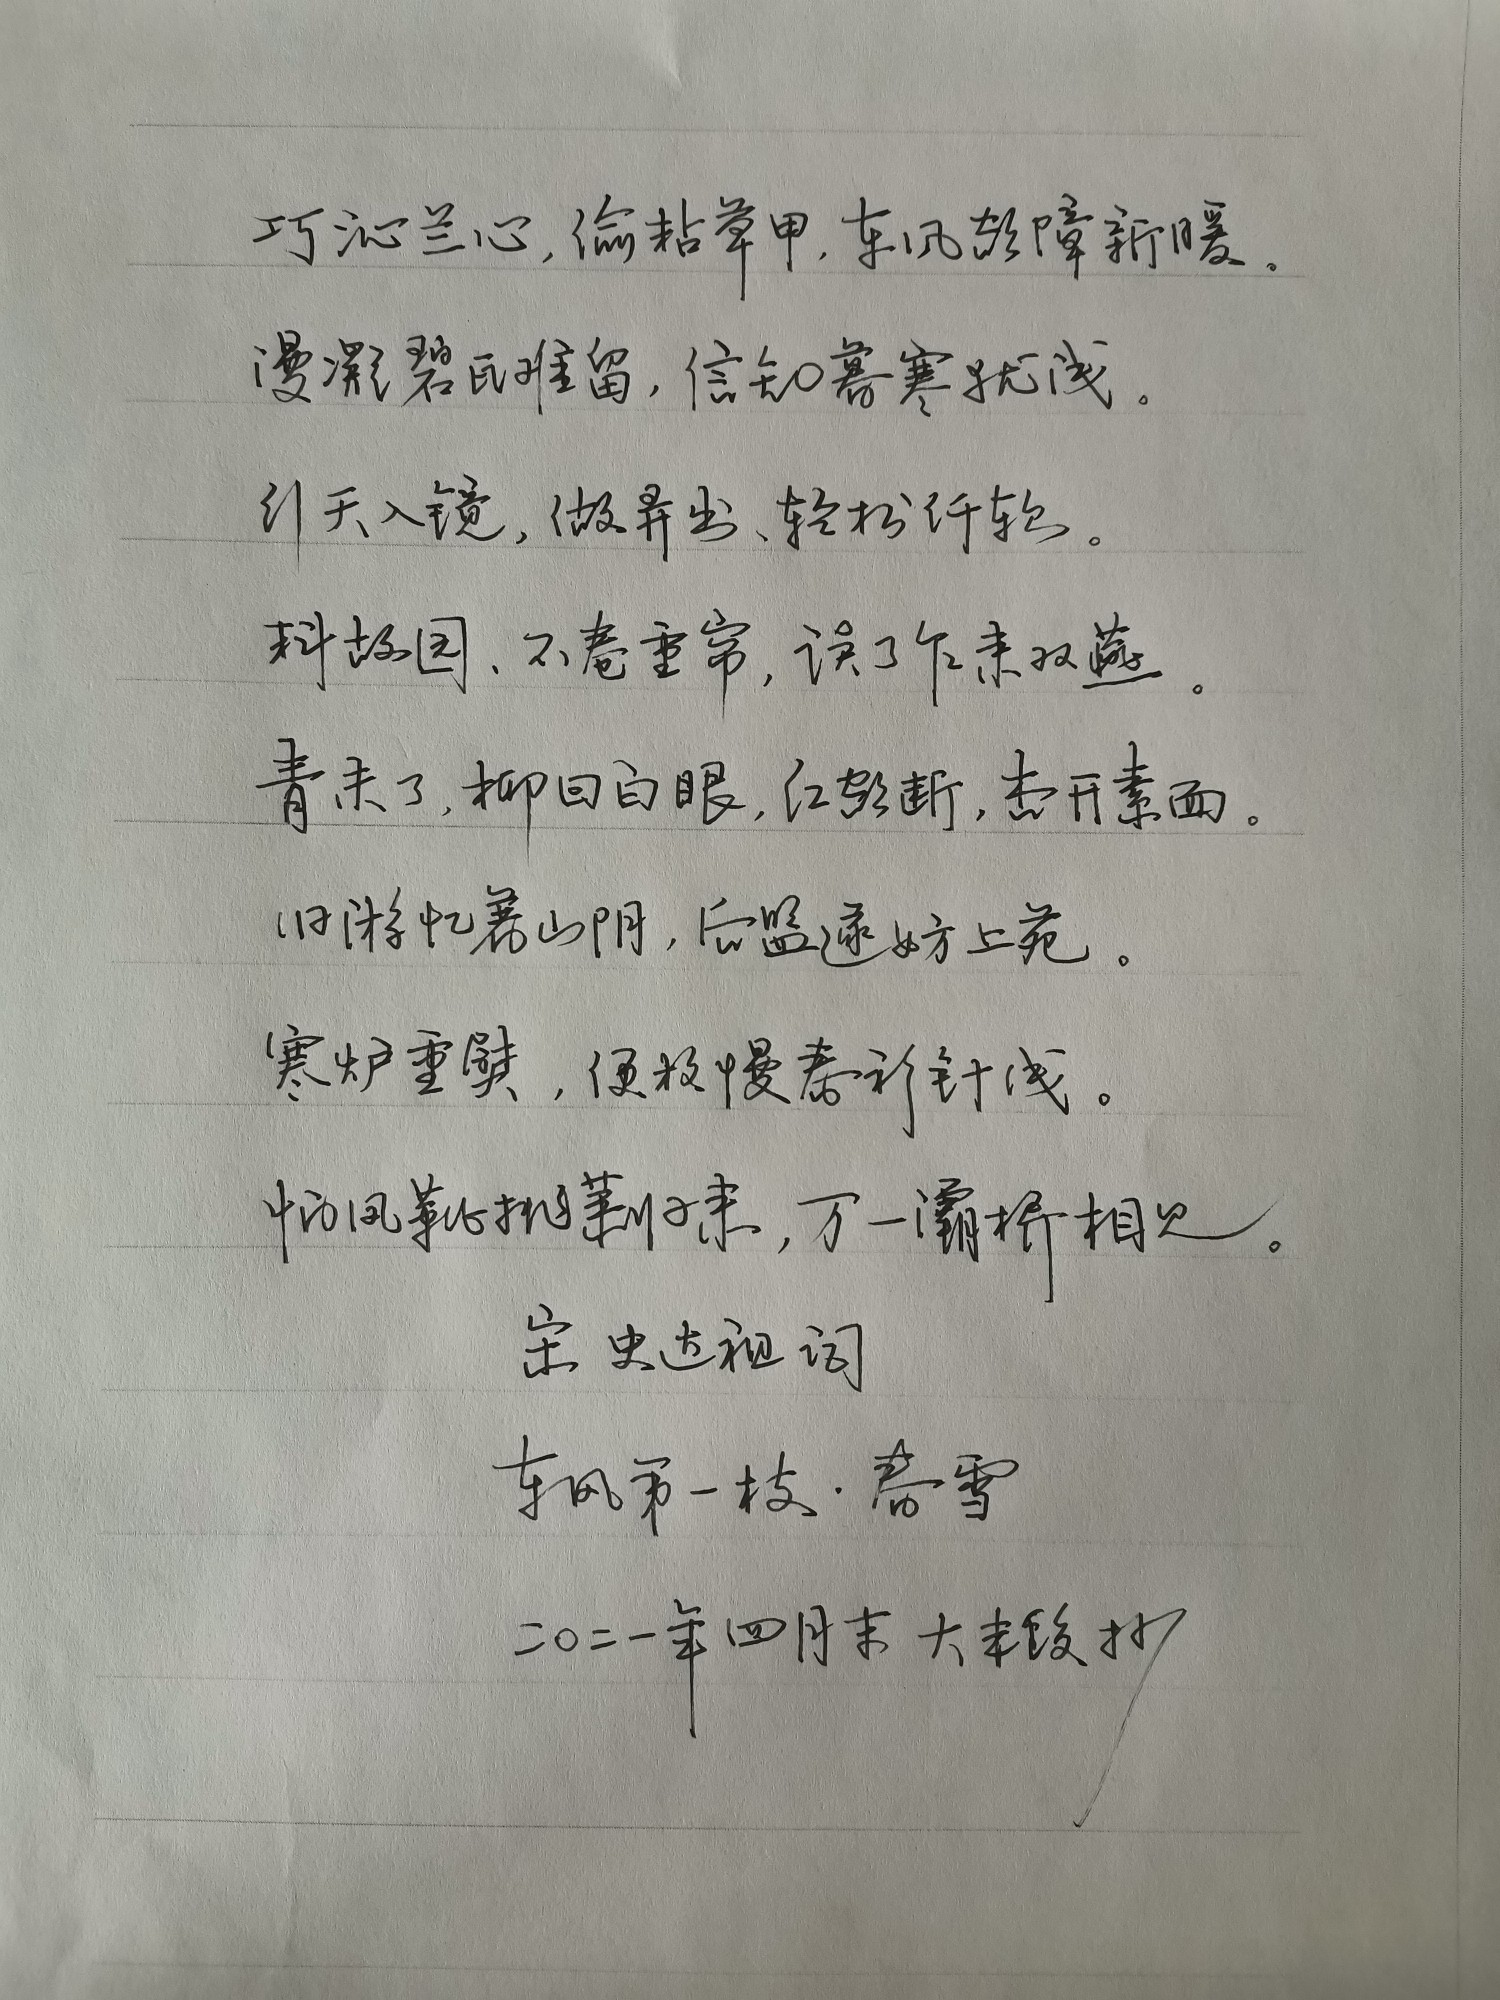 巧沁兰心，偷粘草甲，东风欲障新暖。
漫凝碧瓦难留，信知暮寒犹浅。
行天入镜，做弄出、轻松纤软。
料故园、不卷重帘，误了乍来双燕。
青未了，柳回白眼，红欲断，杏开素面。
旧游忆著山阴，后盟遂妨上苑。
寒炉重熨，便放慢春衫针线。
怕凤靴挑菜归来，万一灞桥相见。
宋 史达祖词
东风第一枝·春雪
二〇二一年四月末 大末 抄